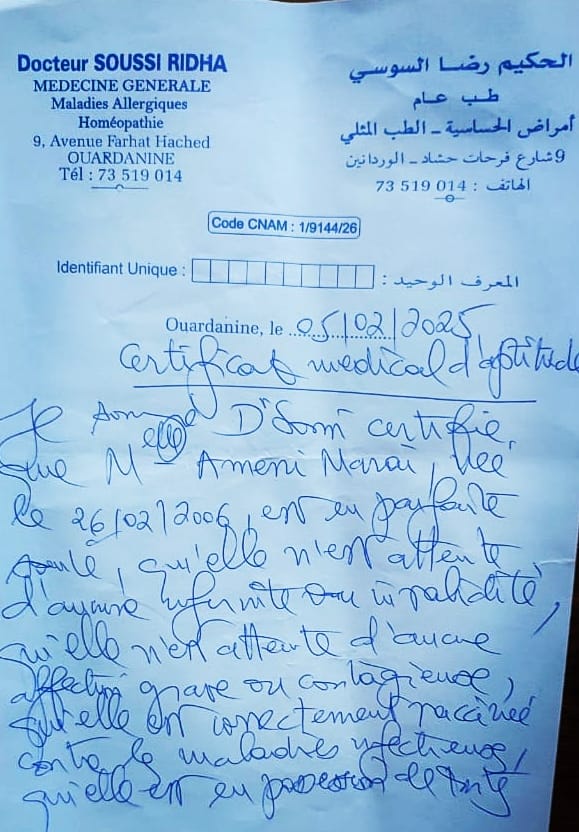 Docteur SOUSSI RIDHA
MEDECINE GENERALE
Maladies Allergiques
Homéopathie
9, Avenue Farhat Hached
OUARDANINE
Tél : 73 519 014
الحكيم رضا السوسي
طب عام
أمراض الحساسية - الطب المثلي
9 شارع فرحات حشاد - الوردانين
الهاتف : 014 519 73
Code CNAM : 1/9144/26
Identifiant Unique : المعرف الوحيد :
Ouardanine, le 05/02/2025
Certificat médical d'aptitude
Je Dr certifie,
que Melle Ameni Marai, née
le 26/02/2006, est en parfaite
santé, qu'elle n'est atteinte
d'aucune infirmité ou invalidité,
qu'elle n'est atteinte d'aucune
affection grave ou contagieuse,
qu'elle est correctement vaccinée
contre les maladies infectieuses,
qu'elle est en possession de